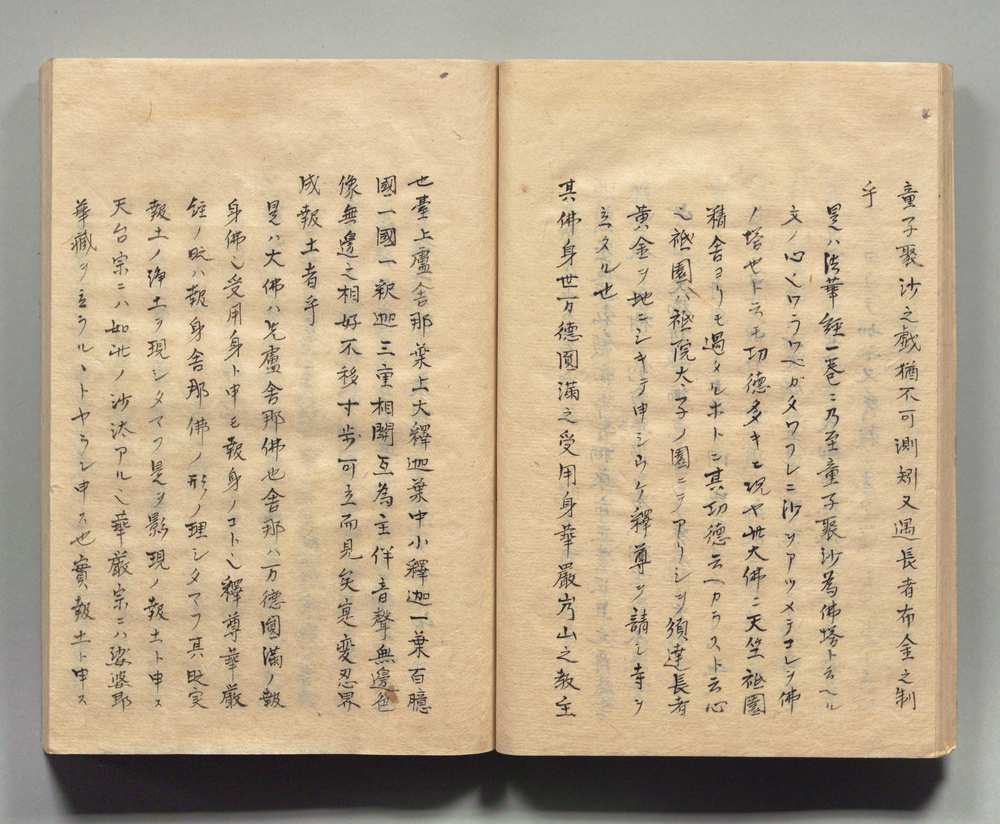 童子聚沙之戯猶不可測矧又過長者布金之制
乎
是ハ法華経一巻ニ乃至童子聚沙為佛塔ト云ヘル
文ノ心也ワラウヘガタワフレニ沙ヲアツメテコレヲ佛
ノ塔也ト云モ功徳多キニ況ヤ此大佛ニ天竺祇園
精舎ヨリモ過タルホトニ其功徳云ヘカラスト云心
也祇園ハ祇院大子ノ園ニテアリシヲ須達長者
黄金ヲ地ニシキテ申シウケ釋尊ヲ請シ寺ヲ
立タル也
其佛身世万徳圓滿之受用身華嚴
山之教主
也臺上盧舎那葉上大釋迦葉中小釋迦一葉百臆
國一國一釈迦三重相關互為主伴音聲無邊色
像無邊之相好不移寸歩可立而見矣寔変忍界
成報土者乎
是ハ大佛ハ
盧舎那佛也舎那ハ万徳圓滿ノ報
身佛也受用身ト申モ報身ノコト也釋尊華厳
経ノ時ハ報身舎那佛ノ形ノ理シタマフ其時実
報土ノ浄土ヲ現シタマフ是ヲ影現ノ報土ト申ス
天台宗ニハ如此ノ沙汰アル也華厳宗ニハ娑婆即
華藏ヲ立ラルヽトヤラン申ス也實報土ト申ス